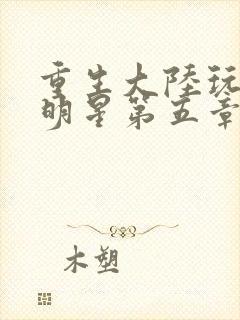 重生大陸玩
明星第五章
木塑